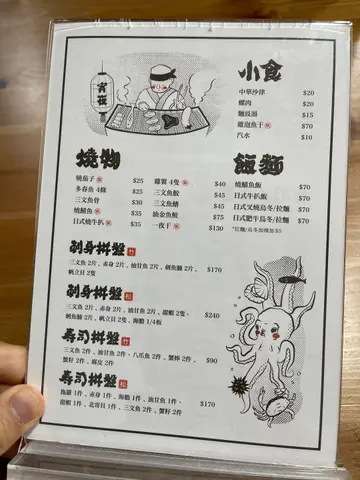 宵夜
小食
中華沙律 $20
螺肉 $20
麵豉湯 $15
雞泡魚干 $70
汽水 $10
燒物
燒茄子 $25
多春魚 4條 $25
三文魚骨 $30
燒鯖魚 $35
日式燒牛扒 $35
雞翼 4隻 $40
三文魚鮫 $45
三文魚腩 $45
油金魚鮫 $75
一夜干 $130
飯麵
燒鰻魚飯 $70
日式牛扒飯 $70
日式叉燒烏冬/拉麵 $70
日式肥牛烏冬/拉麵 $70
*拉麵/烏冬加辣加$5
刺身拼盤 竹
三文魚 2片、赤身 2片、油甘魚 2片、劍魚腩 2片、 $170
帆立貝 2隻
刺身拼盤 松
三文魚 2片、赤身 2片、油甘魚 2片、甜蝦 2隻、 $240
劍魚腩 2片、帆立貝 2隻、海膽 1/4板
寿司拼盤 竹
三文魚 2件、油甘魚 2件、八爪魚 2件、蟹棒 2件、 $90
蟹籽 2件、腐皮 2件
寿司拼盤 松
拖羅 1件、赤身 1件、海膽 1件、油甘魚 1件、 $170
甜蝦 1件、北寄貝 1件、三文魚 2件、蟹籽 2件